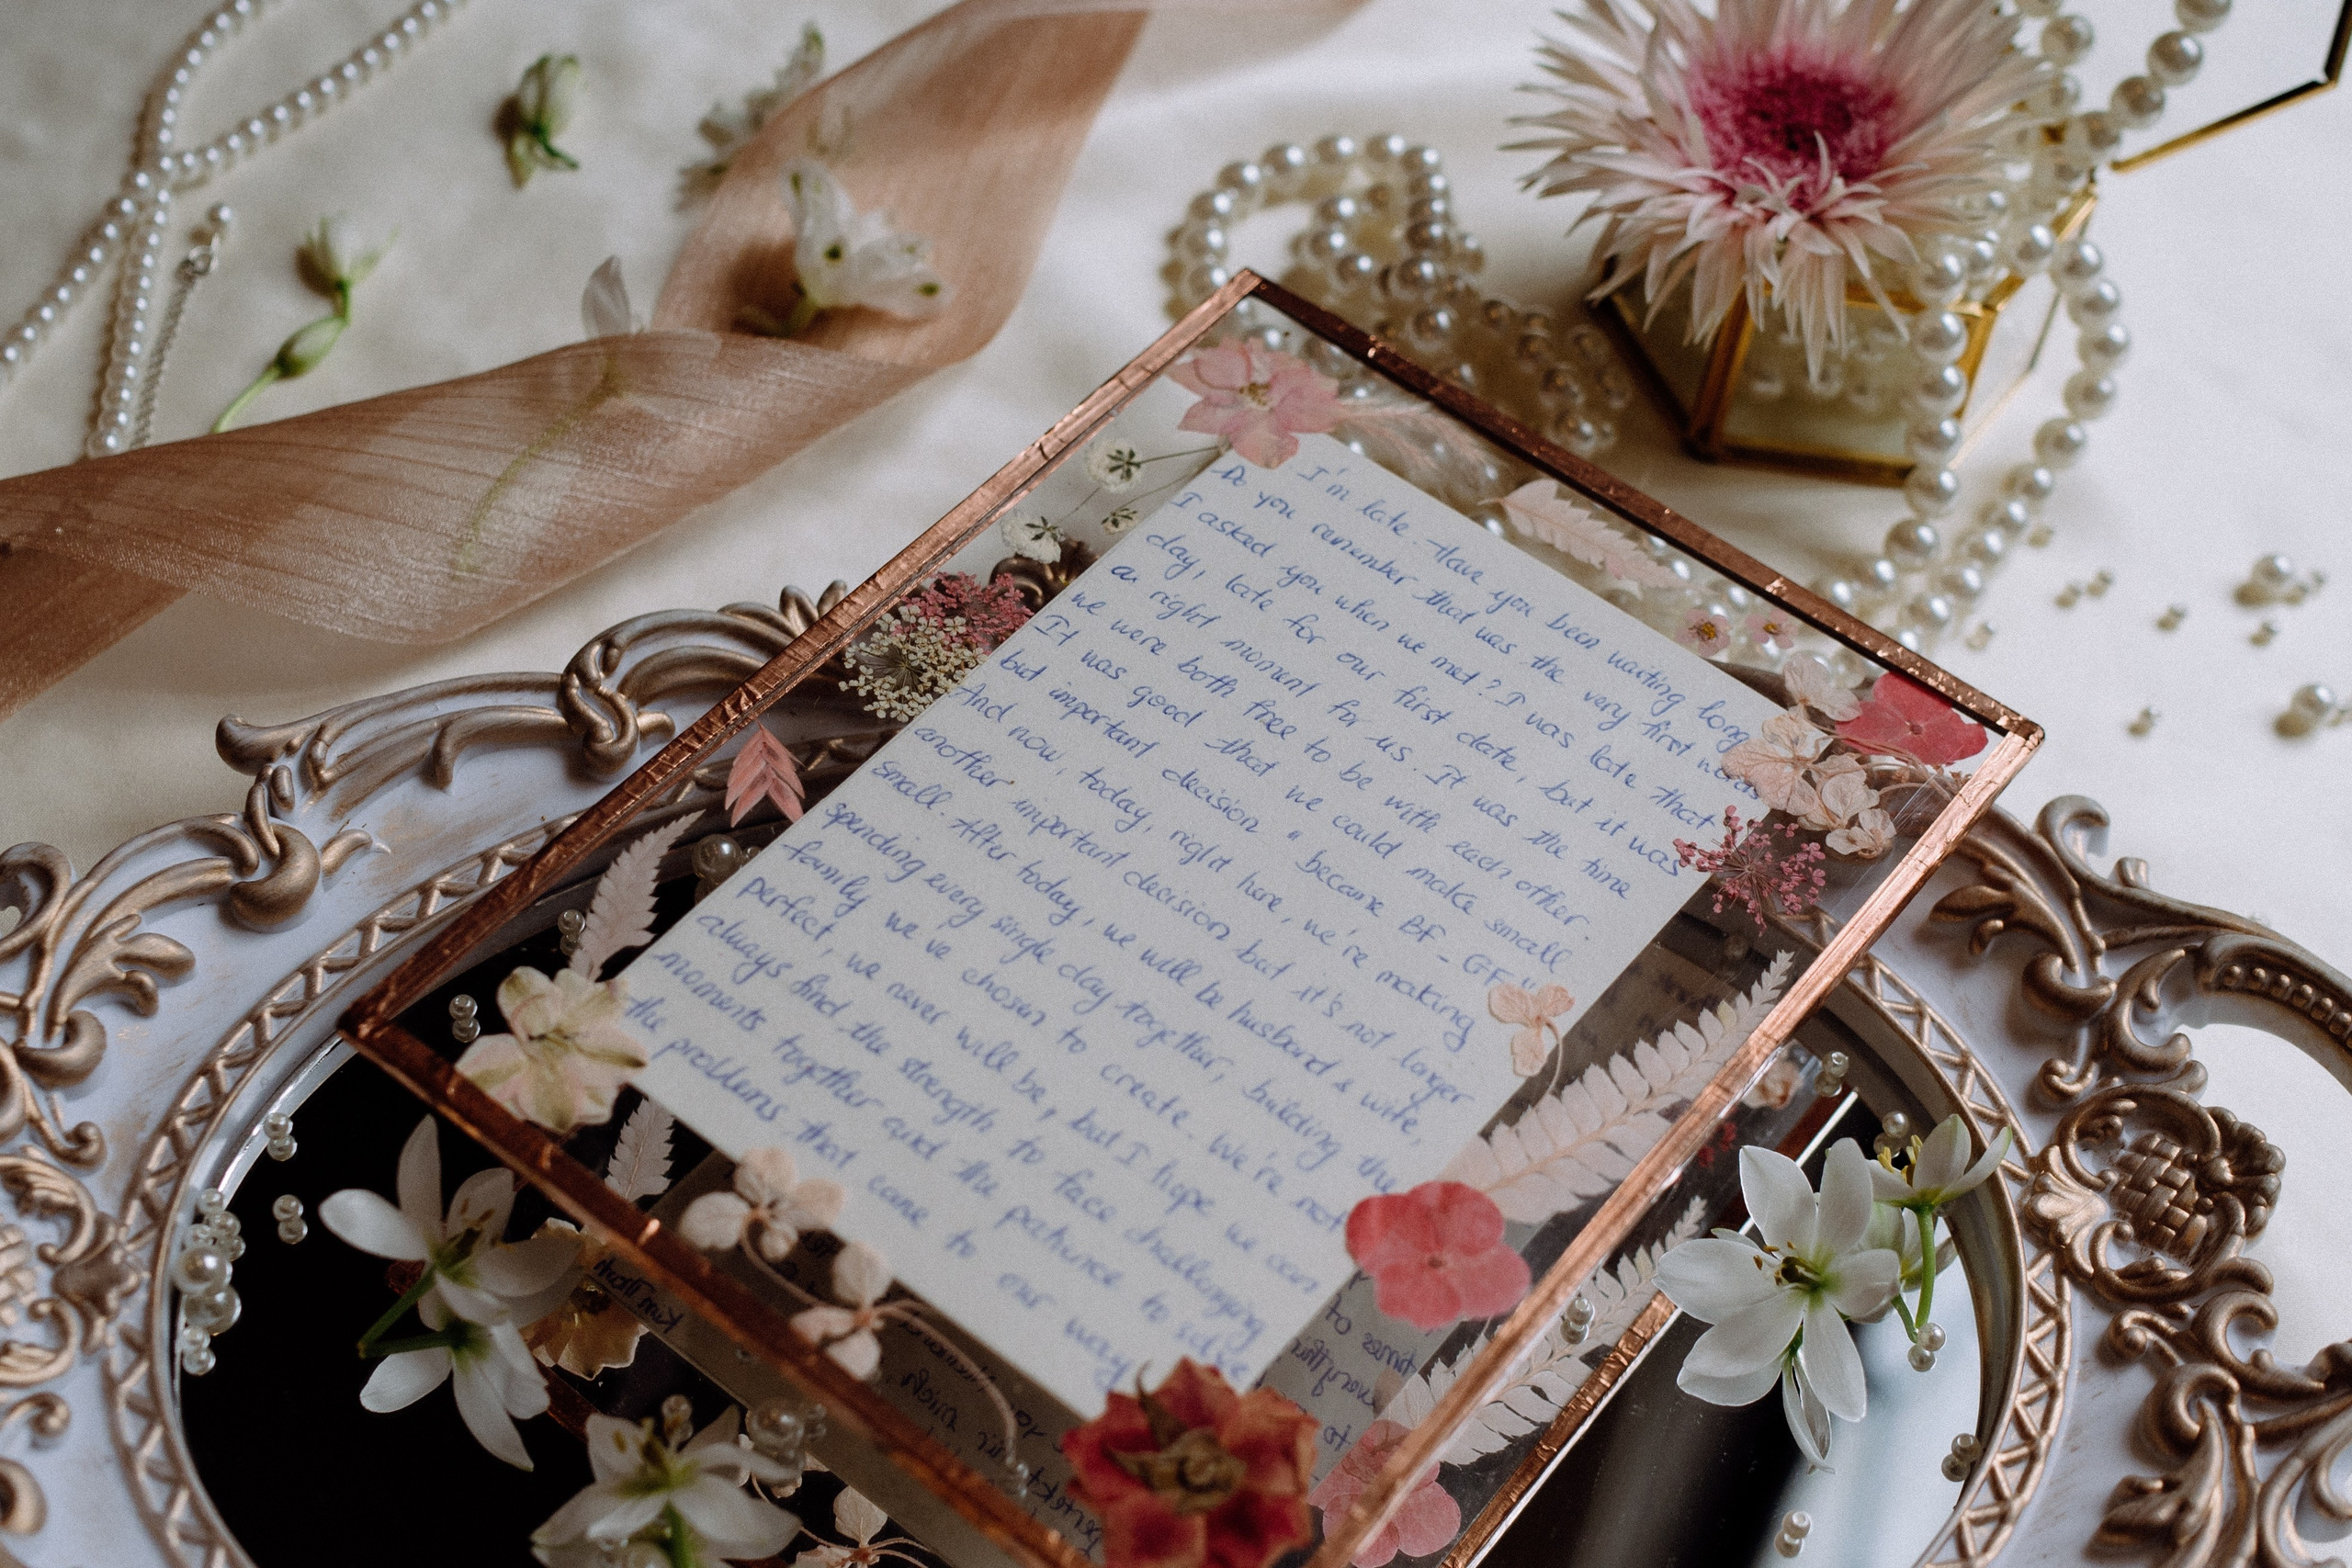 I'm late. Have you been waiting long
Do you remember that was the very first words
I asked you when we met? I was late that
day, late for our first date, but it was
a right moment for us. It was the time
we were both free to be with each other.
It was good that we could make small
but important decision " became BF - GF"
And now, today, right here, we're making
another important decision but it's not larger
small. After today, we will be husband & wife,
spending every single day together, building the
family we've chosen to create. We're not
perfect, we never will be, but I hope we can
always find the strength to face challenging
moments together and the patience to solve
the problems that come to our way